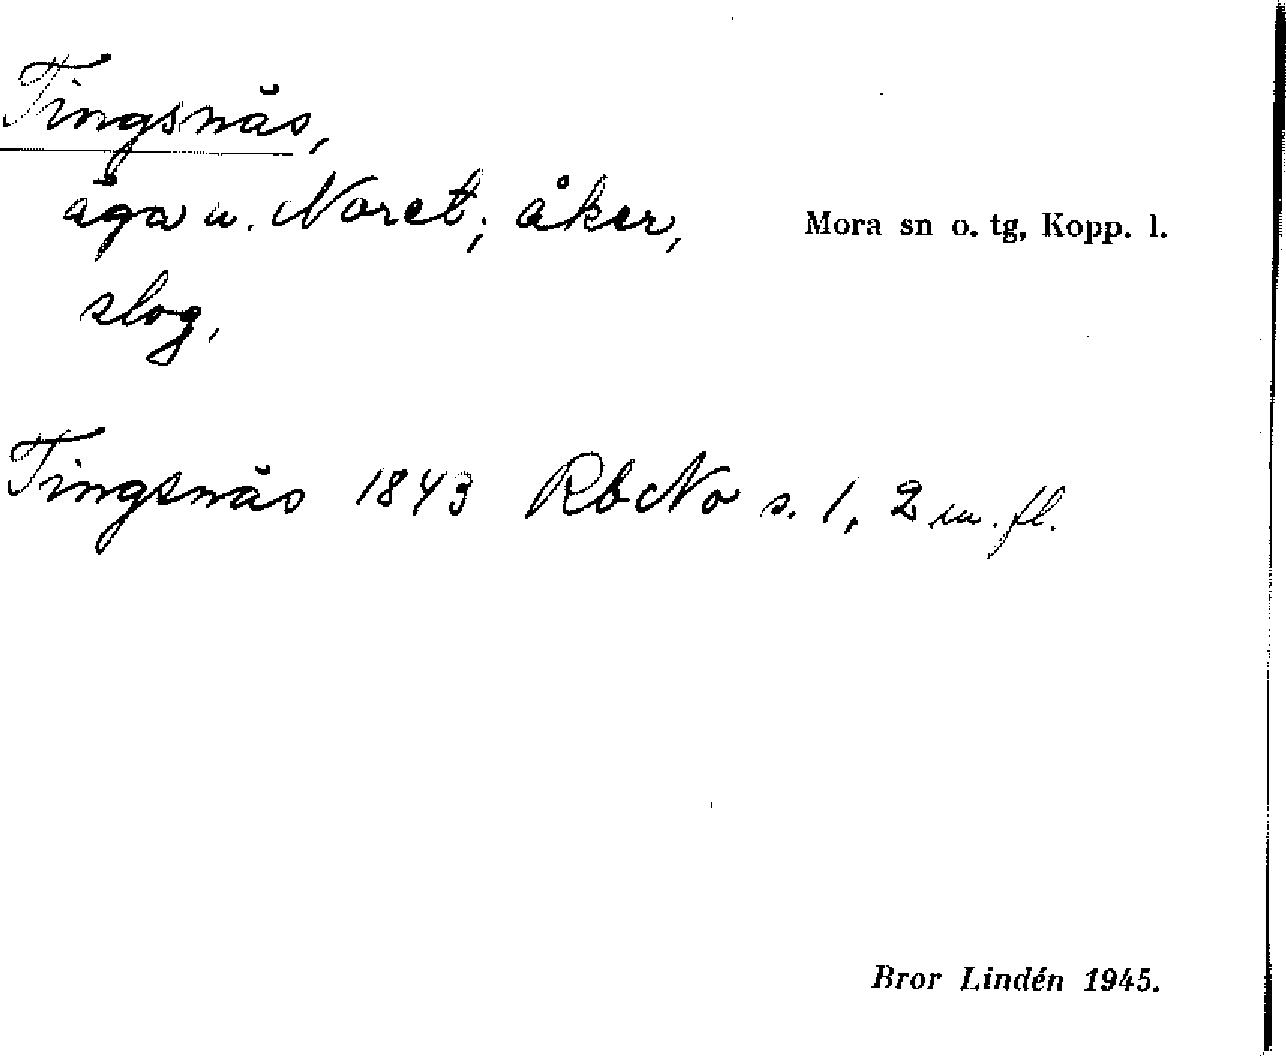 Tingsnäs,
äga u. Noret; åker,
Mora sn o. tg, Kopp. l.
slog,
Tingsnäs 1843 RbNo s. 1, 2 m. fl.
Bror Lindén 1945.